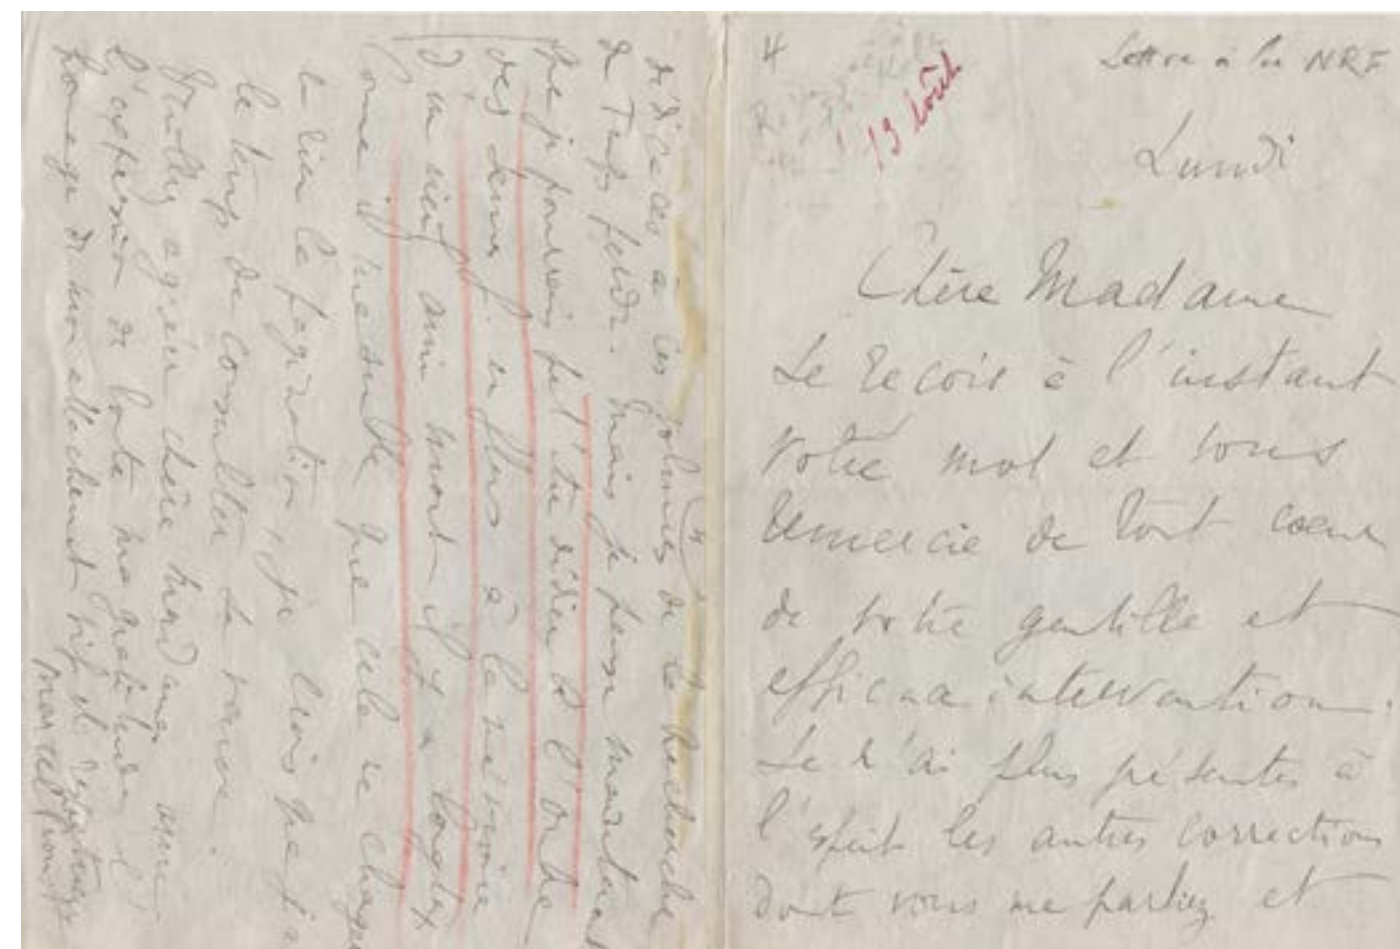 4
Lettre à la NRF
19 Août
Lundi
Chère Madame
Je reçois à l'instant
votre mot et vous
remercie de tout coeur
de votre gentille et
efficace intervention.
Je n'ai plus présentes à
l'esprit les autres corrections
dont vous me parliez et
dédicace à ces volumes de la Recherche
du Temps perdu. Mais je pense maintenant
que je pourrais peut'être dédier A l'ombre
des jeunes filles en fleurs à la mémoire
d'un vieil ami mort il y a longtemps
me semble que cela ne change
en rien la pagination, je crois que j'ai
le temps de consulter sa
Veuillez agréer chère Madame avec
l'expression de toute ma gratitude l'
hommage de mon attachement vif et respectueux
Marcel Proust